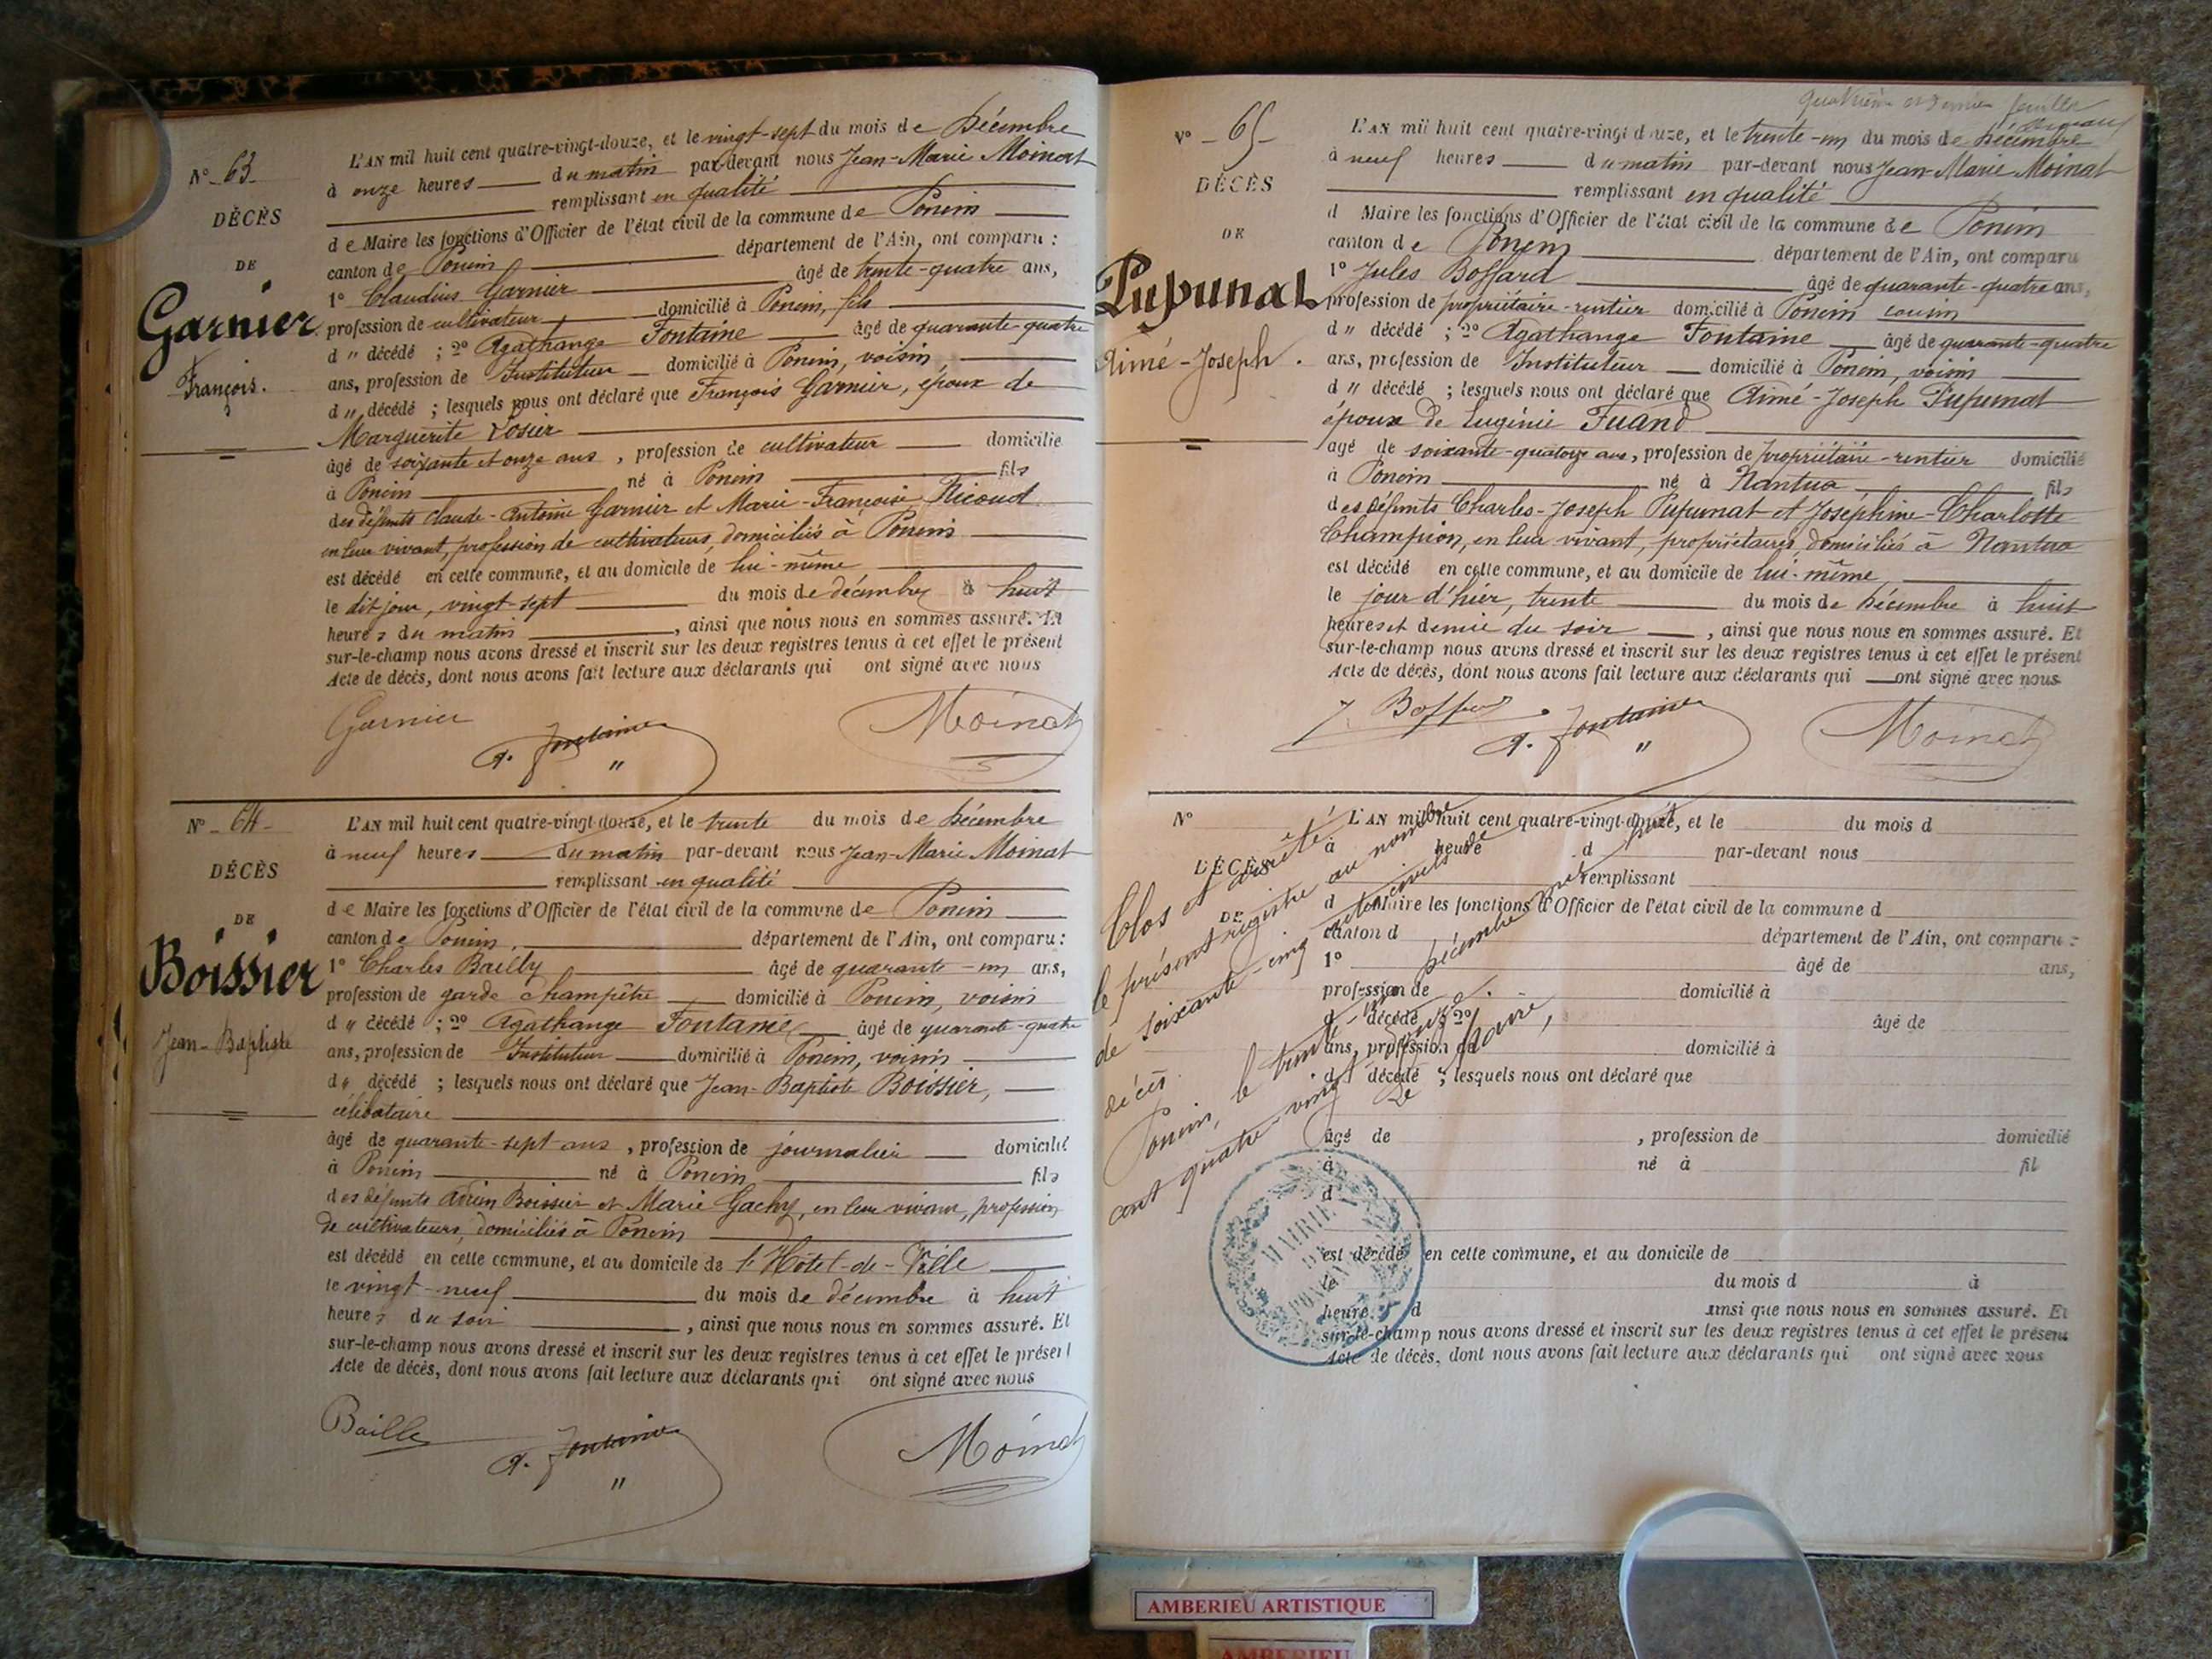 N° 63
DÉCÈS
DE
Garnier
François.
L'AN mil huit cent quatre-vingt-douze, et le vingt-sept du mois de Décembre
à onze heures du matin par-devant nous Jean-Marie Moinat
remplissant en qualité
de Maire les fonctions d'Officier de l'état civil de la commune de Poncin
canton de Poncin département de l'Ain, ont comparu :
1° Claudius Garnier âgé de trente-quatre ans,
profession de cultivateur domicilié à Poncin, fils
d " décédé ; 2° Agathange Fontaine âgé de quarante-quatre
ans, profession de Instituteur domicilié à Poncin, voisin
d " décédé ; lesquels nous ont déclaré que François Garnier, époux de
Marguerite Losier
âgé de soixante et onze ans, profession de cultivateur domicilié
à Poncin né à Poncin fils
des défunts Claude-Antoine Garnier et Marie-Françoise Nicoud
en leur vivant, profession de cultivateurs, domiciliés à Poncin
est décédé en cette commune, et au domicile de lui-même
le dit jour, vingt-sept du mois de décembre à huit
heures du matin, ainsi que nous nous en sommes assuré. Et
sur-le-champ nous avons dressé et inscrit sur les deux registres tenus à cet effet le présent
Acte de décès, dont nous avons fait lecture aux déclarants qui ont signé avec nous
Garnier
A. Fontaine
Moinat
N° 64
DÉCÈS
DE
Boissier
Jean-Baptiste
L'AN mil huit cent quatre-vingt-douze, et le trente du mois de Décembre
à neuf heures du matin par-devant nous Jean-Marie Moinat
remplissant en qualité
de Maire les fonctions d'Officier de l'état civil de la commune de Poncin
canton de Poncin département de l'Ain, ont comparu :
1° Charles Bailly âgé de quarante-un ans,
profession de garde champêtre domicilié à Poncin, voisin
d " décédé ; 2° Agathange Fontaine âgé de quarante-quatre
ans, profession de Instituteur domicilié à Poncin, voisin
d " décédé ; lesquels nous ont déclaré que Jean-Baptiste Boissier,
célibataire
âgé de quarante-sept ans, profession de journalier domicilié
à Poncin né à Poncin fils
des défunts Boissier et Marie Gachy, en leur vivant, profession
de cultivateurs, domiciliés à Poncin
est décédé en cette commune, et au domicile de l'Hôtel-de-Ville
le vingt-neuf du mois de décembre à huit
heures du soir, ainsi que nous nous en sommes assuré. Et
sur-le-champ nous avons dressé et inscrit sur les deux registres tenus à cet effet le présent
Acte de décès, dont nous avons fait lecture aux déclarants qui ont signé avec nous
Bailly
A. Fontaine
Moinat
quatrième et dernier feuillet
N° 65
DÉCÈS
DE
Pupunat
Aimé-Joseph.
L'AN mil huit cent quatre-vingt douze, et le trente-un du mois de Décembre
à neuf heures du matin par-devant nous Jean-Marie Moinat
remplissant en qualité
d Maire les fonctions d'Officier de l'état civil de la commune de Poncin
canton de Poncin département de l'Ain, ont comparu
1° Jules Boffard âgé de quarante-quatre ans,
profession de propriétaire-rentier domicilié à Poncin cousin
d " décédé ; 2° Agathange Fontaine âgé de quarante-quatre
ans, profession de Instituteur domicilié à Poncin, voisin
d " décédé ; lesquels nous ont déclaré que Aimé-Joseph Pupunat
époux de Eugénie Fuand
âgé de soixante-quatorze ans, profession de propriétaire-rentier domicilié
à Poncin né à Nantua fils
des défunts Charles-Joseph Pupunat et Joséphine-Charlotte
Champion, en leur vivant, propriétaires, domiciliés à Nantua
est décédé en cette commune, et au domicile de lui-même
le jour d'hier, trente du mois de Décembre à huit
heures et demie du soir, ainsi que nous nous en sommes assuré. Et
sur-le-champ nous avons dressé et inscrit sur les deux registres tenus à cet effet le présent
Acte de décès, dont nous avons fait lecture aux déclarants qui ont signé avec nous
J. Boffard
A. Fontaine
Moinat
N°
DÉCÈS
DE
L'AN mil huit cent quatre-vingt-douze, et le du mois d
à heure d par-devant nous
remplissant
d Maire les fonctions d'Officier de l'état civil de la commune d
canton d département de l'Ain, ont comparu :
1° âgé de ans,
profession de domicilié à
d décédé ; 2° âgé de
ans, profession de domicilié à
d décédé ; lesquels nous ont déclaré que
âgé de , profession de domicilié
à né à fil
d
est décédé en cette commune, et au domicile de
le du mois d à
heure d ainsi que nous nous en sommes assuré. Et
sur-le-champ nous avons dressé et inscrit sur les deux registres tenus à cet effet le présent
Acte de décès, dont nous avons fait lecture aux déclarants qui ont signé avec nous
Clos et arrêté
le présent registre au nombre
de soixante-cinq actes civils de
décès.
Poncin, le trente-un Décembre mil huit
cent quatre-vingt douze.
Le Maire,
MAIRIE
DE
PONCIN
AMBERIEU ARTISTIQUE
AMBERIEU